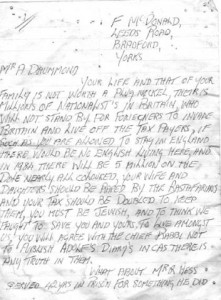 F McDONALD,
LEEDS ROAD,
BRADFORD,
YORKS
Mr A DRUMMOND
YOUR LIFE AND THAT OF YOUR
FAMILY IS NOT WORTH A PLUGNICKEL, THERE IS
MILLIONS OF NATIONALIST'S IN BRITAIN, WHO
WILL NOT STAND BY, FOR FOREIGNERS TO INVADE
BRITAIN AND LIVE OFF THE TAX PAYERS, IF
SUCH AS YOU ARE ALLOWED TO STAY IN ENGLAND
THERE WOULD BE NO ENGLISH LIVING HERE, AND
THERE WILL BE 5 MILLION ON THE
DOLE NEARLY ALL COLOURED, YOUR WIFE AND
DAUGHTERS SHOULD BE RAPED BY THE RASTAFARIANS
AND YOUR TAX SHOULD BE DOUBLED TO KEEP
THEM, YOU MUST BE JEWISH, AND TO THINK WE
FAUGHT TO SAVE YOU AND YOURS, TO LIVE AMONGST
US, YOU WILL AGREE WITH THE CHIEF RABBI NOT
TO PUBLISH ADOLF'S DIARY'S IN CASE THERE IS
ANY TRUTH IN THEM.
WHAT ABOUT MR HESS
HE WAS IN PRISON FOR SOMETHING HE DID